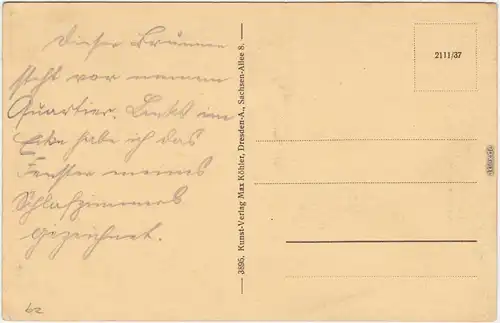 Dieser Brunnen
steht vor meinem
Quartier. Links im
Ecke habe ich das
Fenster meines
Schlafzimmers
gezeichnet.
62
3895, Kunst-Verlag Max Köhler, Dresden-A., Sachsen-Allee 8.
2111/37